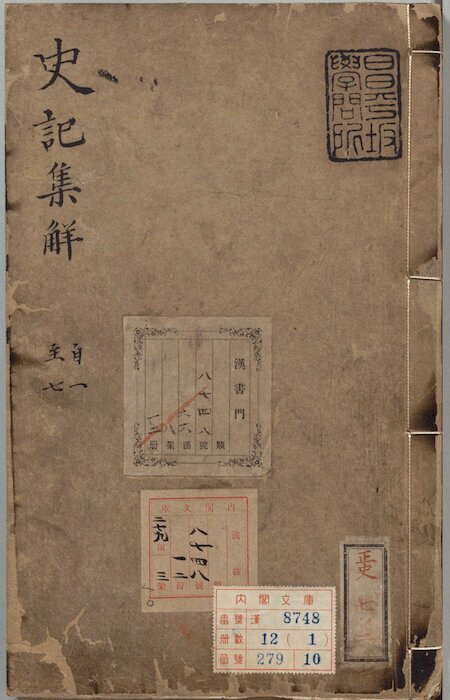 史記集解
自一
至七
昌平坂
學問所
漢書門
八七四八
類號函架册
内閣文庫
漢書
八七四八
二七九
内閣文庫
番號 漢 8748
册數 12 ( 1 )
函號 279 10